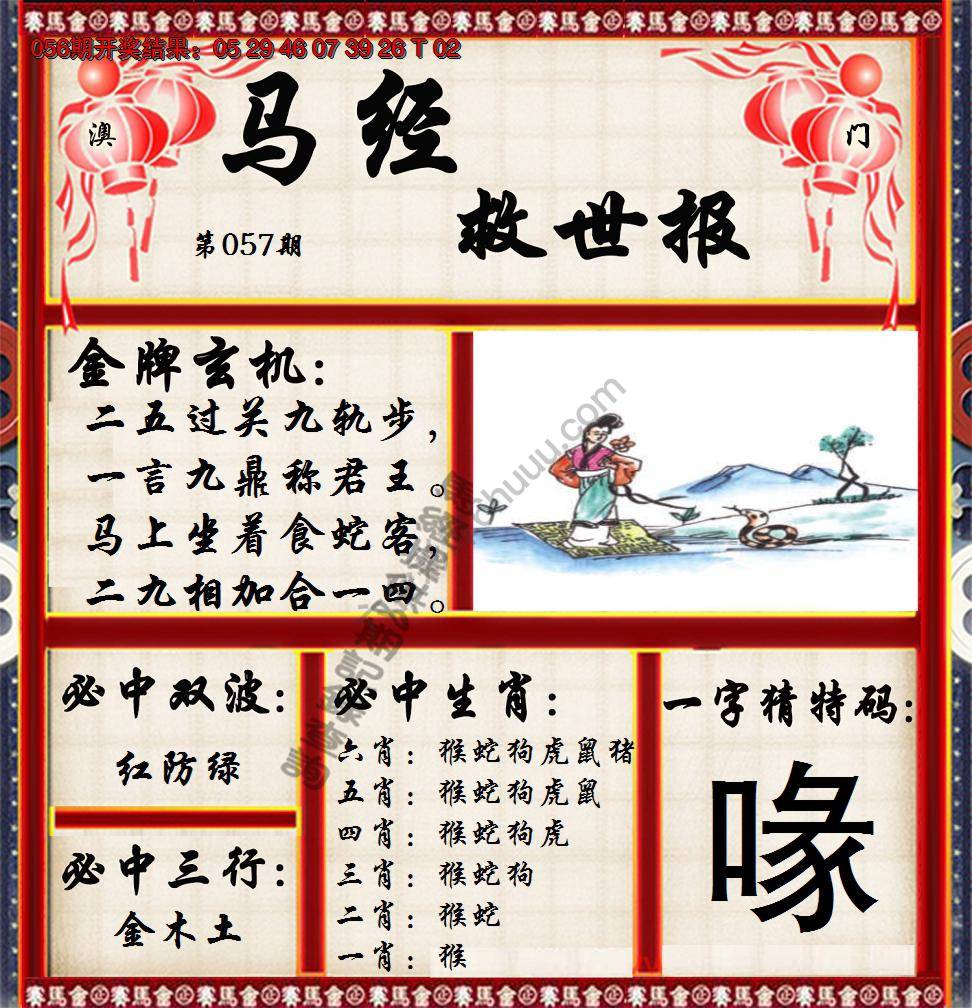 賽馬會
056期开奖结果：05 29 46 07 39 26 T 02
澳
门
马经
救世报
第057期
金牌玄机：
二五过关九轨步，
一言九鼎称君王。
马上坐着食蛇客，
二九相加合一四。
必中双波：
红防绿
必中三行：
金木土
必中生肖：
六肖：猴蛇狗虎鼠猪
五肖：猴蛇狗虎鼠
四肖：猴蛇狗虎
三肖：猴蛇狗
二肖：猴蛇
一肖：猴
一字猜特码：
喙